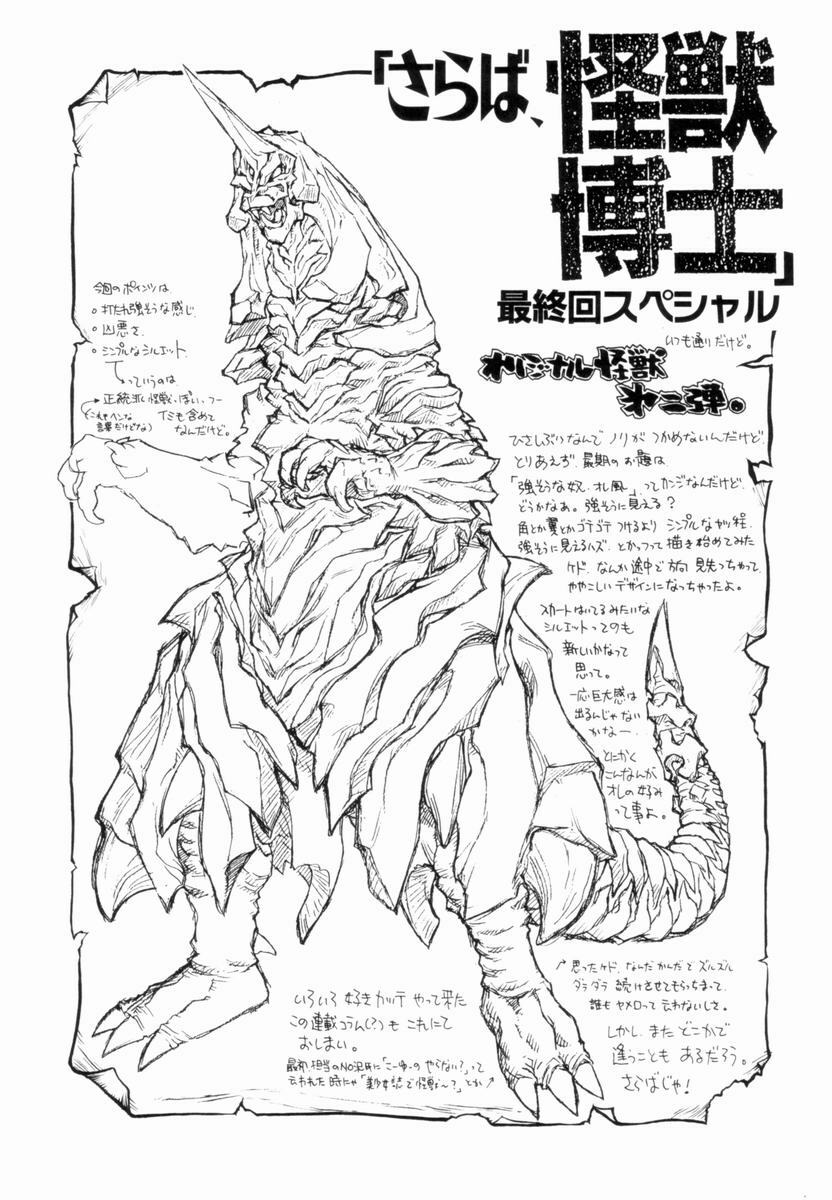 「さらば、怪獣
博士」
最終回スペシャル
いつも通りだけど。
オリジナル怪獣
第二弾。
今回のポインツは
○打たれ強そうな感じ
○凶悪さ
○シンプルなシルエット
っていうのは
→正統派怪獣っぽい、つー
(これもヘンな
言葉だけどな)
イミも含めて
なんだけど。
ひさしぶりなんでノリがつかめないんだけど
とりあえず最期のお題は
「強そうな奴、オレ風」ってカンジなんだけど
どうかなあ。強そうに見える?
角とか翼とかゴテゴテつけるよりシンプルなヤツ程
強そうに見えるハズ、とかっつって描き始めてみた
ケド、なんか途中で方向見失っちゃって
ややこしいデザインになっちゃったよ。
スカートはいてるみたいな
シルエットってのも
新しいかなって
思って。
一応巨大感は
出るんじゃない
かなー
とにかく
こんなんが
オレの好み
って事よ。
いろいろ好きカッテやって来た
この連載コラム(?)もこれにて
おしまい。
最初、担当のNO沢氏に「こーゆーのやらない?」って
云われた時にゃ「美少女誌で怪獣ぅ〜?」とか↗
↗思ったケド、なんだかんだでズルズル
ダラダラ続けさせてもらっちまって、
誰もヤメロって云わないしさ。
しかし、またどこかで
逢うこともあるだろう。
さらばじゃ!